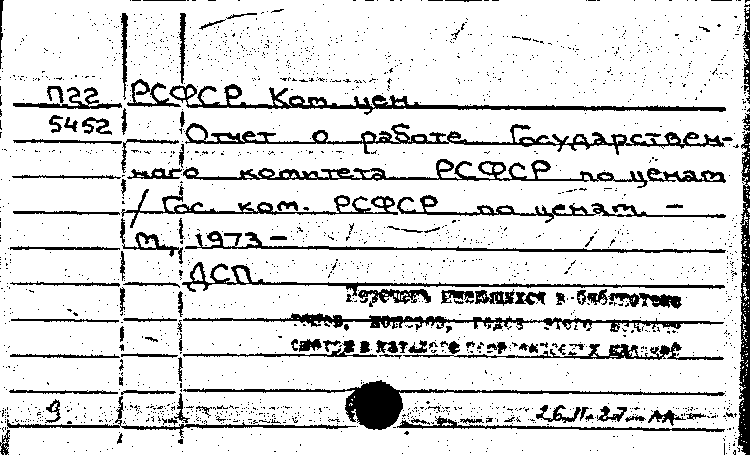 П22 РСФСР. Ком. цен.
5452 Отчет о работе Государствен-
ного комитета РСФСР по ценам
/ Гос. ком. РСФСР по ценам. —
М., 1973 —
ДСП.
Перечень имеющихся в библиотеке
томов, номеров, годов этого издания
смотри в каталоге периодических изданий
9.